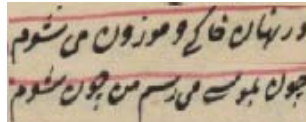 در نهان خاکے و موزون می شوم
چون بموسے می رسم من چون شوم